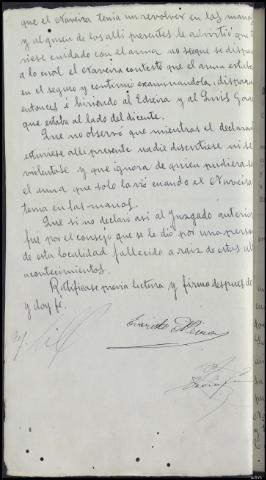 que el Naveira tenia un revolver en las manos
y alguien de los alli presentes le advirtió que
tuviese cuidado con el arma no seque se dispa
a lo cual el Naveira contestó que el arma estaba
en el seguro y continuó examinandola, disparan
entonces é hiriendo al Edreira y al Luis
que estaba al lado del dicente.
Que no observó que mientras el declaran
estuviese alli presente nadie discutiese ni se
violentase y que ignora de quien pudiera
el arma que solo la vió cuando el Naveira
tenia en las manos.
Que si no declaró asi al Juzgado anterior
fué por el consejo que se le dió por una persona
de esta localidad fallecido a raiz de estos
acontecimientos.
Ratificase previa lectura y firma despues de
y doy fé.